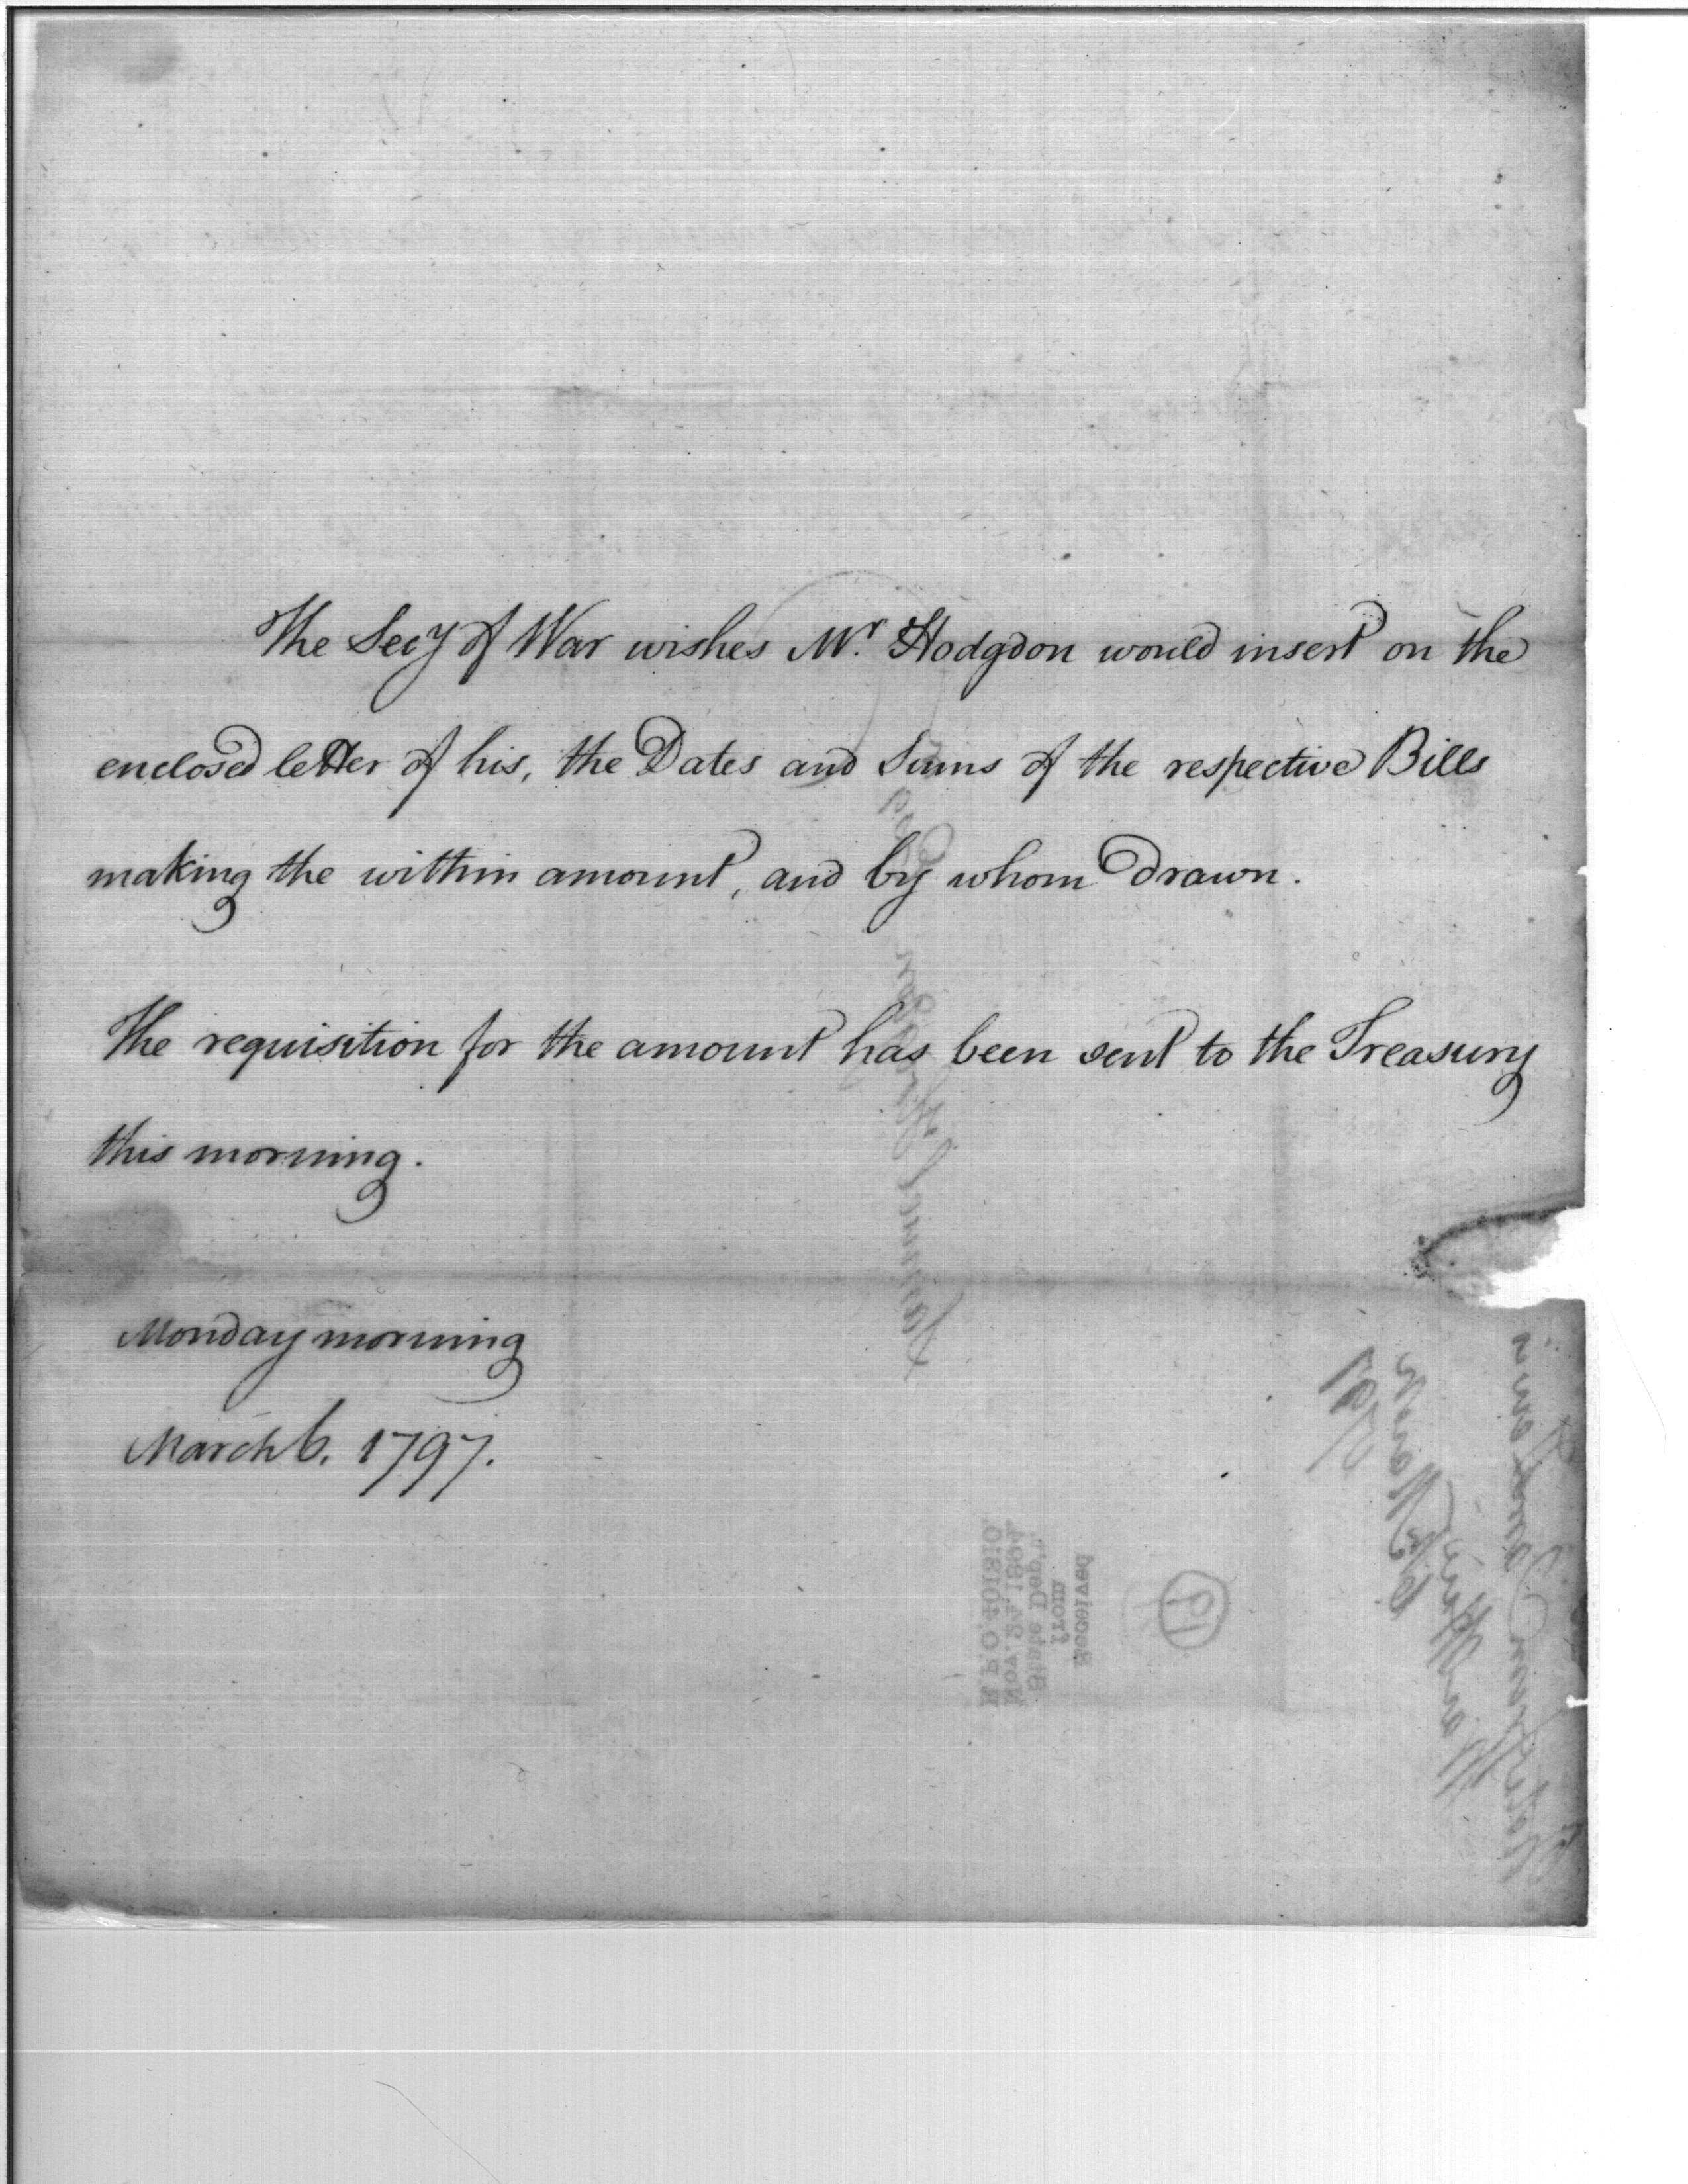 The Secy of War wishes Mr. Hodgdon would insert on the
enclosed letter of his, the Dates and Sums of the respective Bills
making the within amount, and by whom drawn.
The requisition for the amount has been sent to the Treasury
this morning.
Monday morning
March 6. 1797.
Samuel Hodgdon
Received
from
State Dep't.
Nov. 24, 1894.
R.P.O. 401810.
War Office
6 March
1797